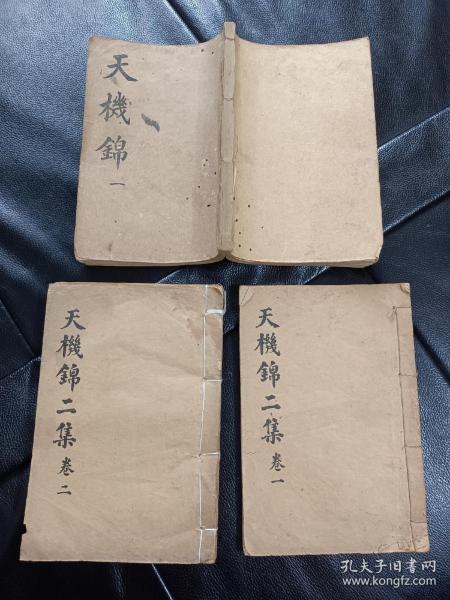 天機錦
一
天機錦二集
卷二
天機錦二集
卷一
孔夫子旧书网
www.kongfz.com